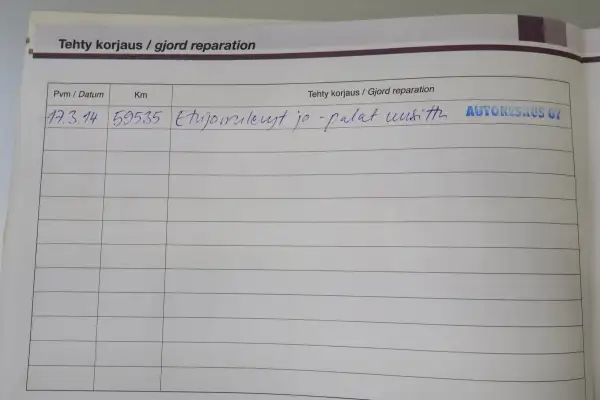 Tehty korjaus / gjord reparation
Pvm / Datum Km Tehty korjaus / Gjord reparation
17.3.14 59535 Etujarrulevyt ja -palat uusittu AUTOKESKUS OY